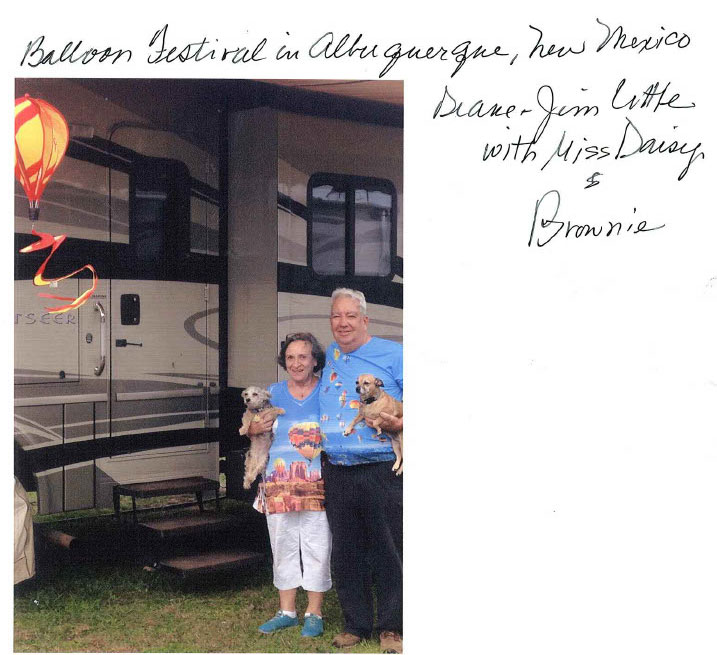 Balloon Festival in Albuquerque, New Mexico
Diane - Jim
with Miss Daisy
&
Brownie
TSEER